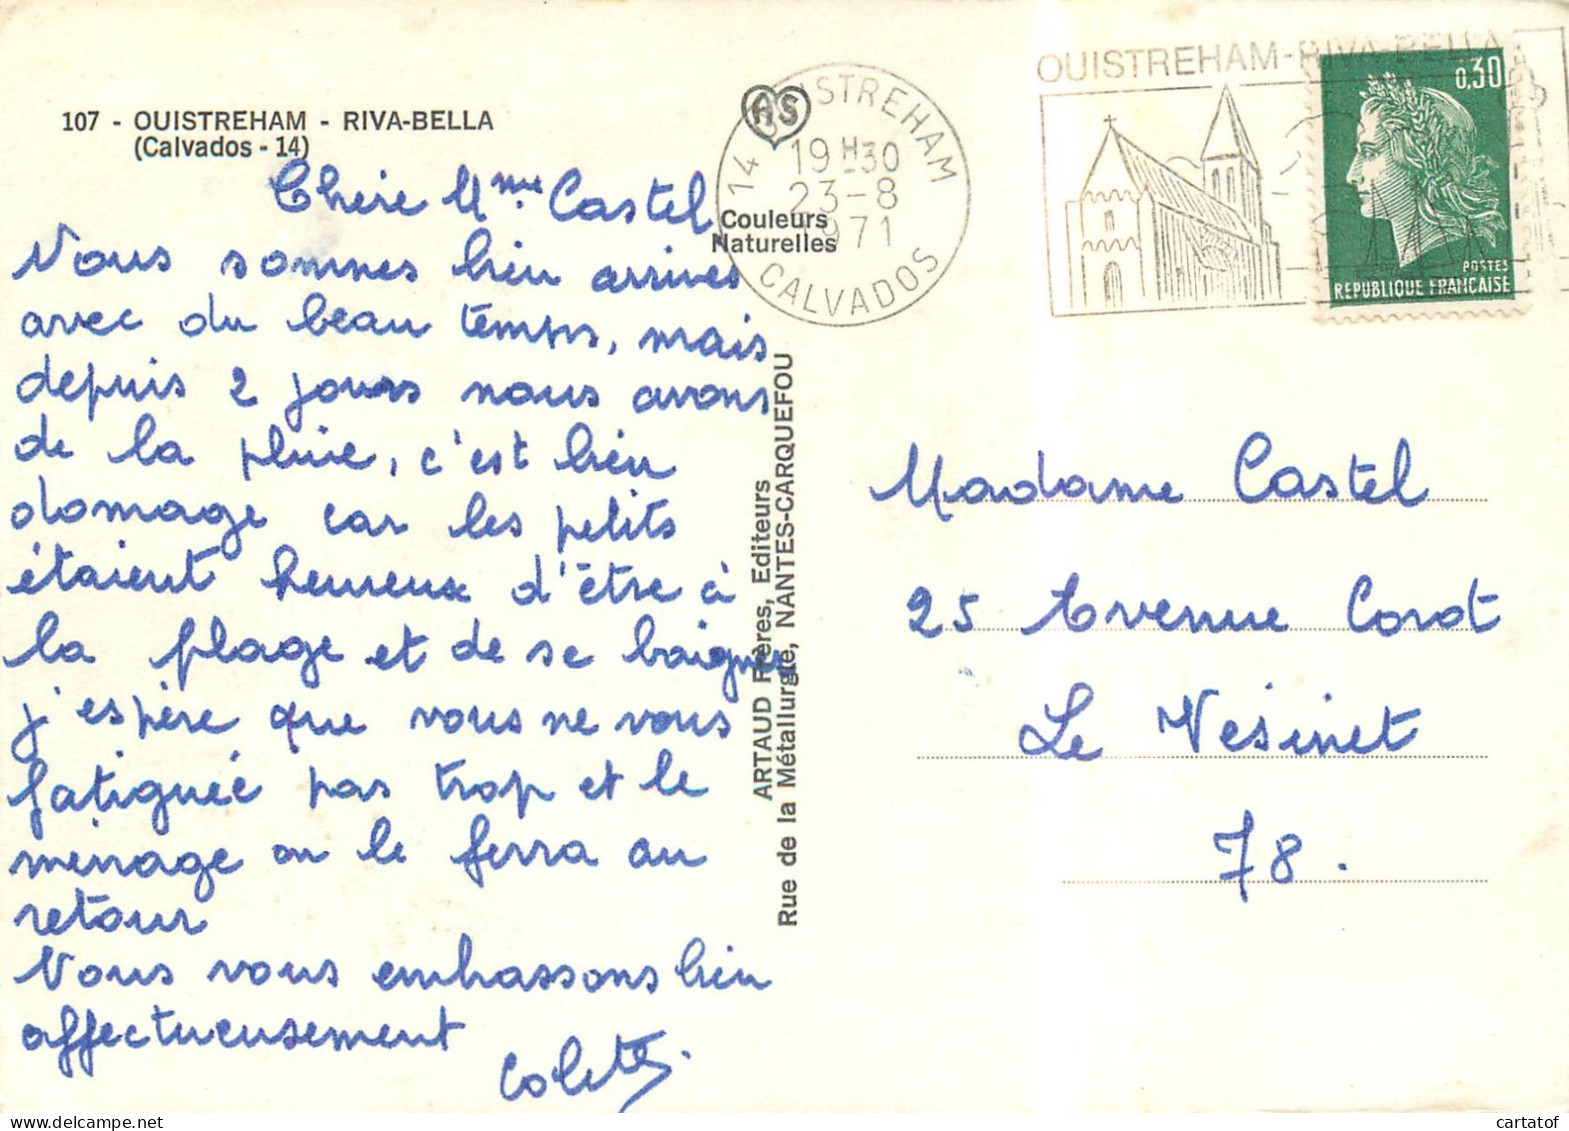 107 - OUISTREHAM - RIVA-BELLA
(Calvados - 14)
Chère Mme Castel
Nous sommes bien arrives
avec du beau temps, mais
depuis 2 jours nous avons
de la pluie, c'est bien
domage car les petits
étaient heureux d'être à
la plage et de se baigner
j'espère que vous ne vous
fatiguée pas trop et le
ménage on le ferra au
retour
Nous vous embrassons bien
affectueusement
Colette.
AS
Couleurs
Naturelles
14 OUISTREHAM
19H30
23-8
1971
CALVADOS
OUISTREHAM-RIVA-BELLA
0,30
POSTES
REPUBLIQUE FRANÇAISE
ARTAUD Frères, Editeurs
Rue de la Métallurgie, NANTES-CARQUEFOU
Madame Castel
25 Avenue Corot
Le Vesinet
78.
cartatof